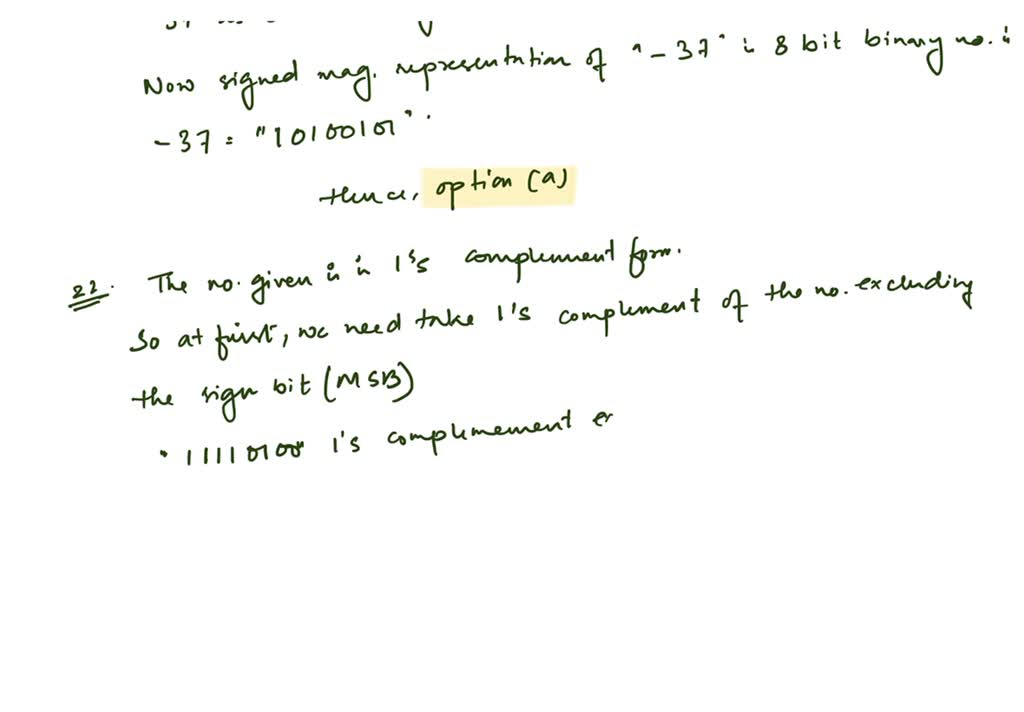 Now signed mag. representation of "-37" is 8 bit binary no. is
-37 = "10100101".
thence, option (a)
22. The no. given is in 1's complement form.
So at first, we need take 1's complement of the no. excluding
the sign bit (MSB)
"11110100" 1's complimement ex